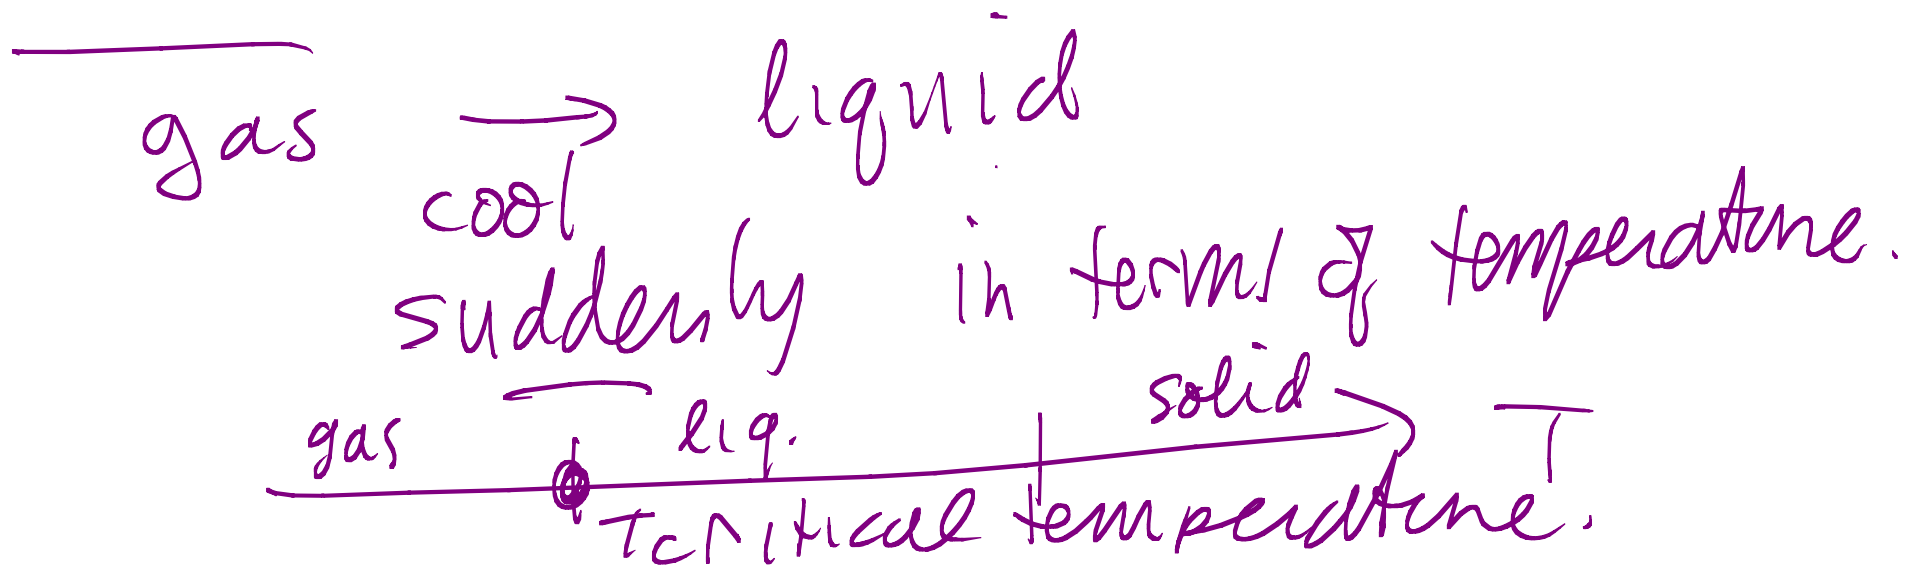 gas → liquid
cool
suddenly in terms of temperature.
gas liq. solid
T
Tcritical temperature.